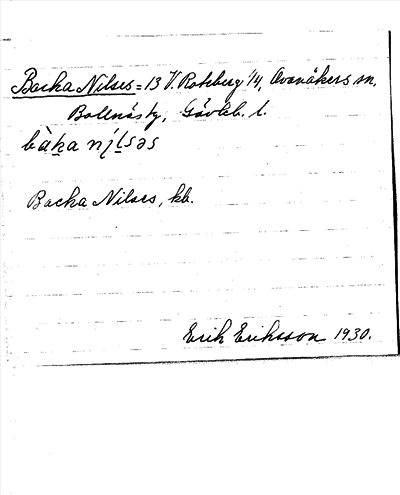 Backa Nilses = 13 V. Roteberg 1/4, Ovanåkers sn,
Bollnäs tg, Gävleb. l.
bàka nílsəs
Backa Nilses, kb.
Erik Eriksson 1930.